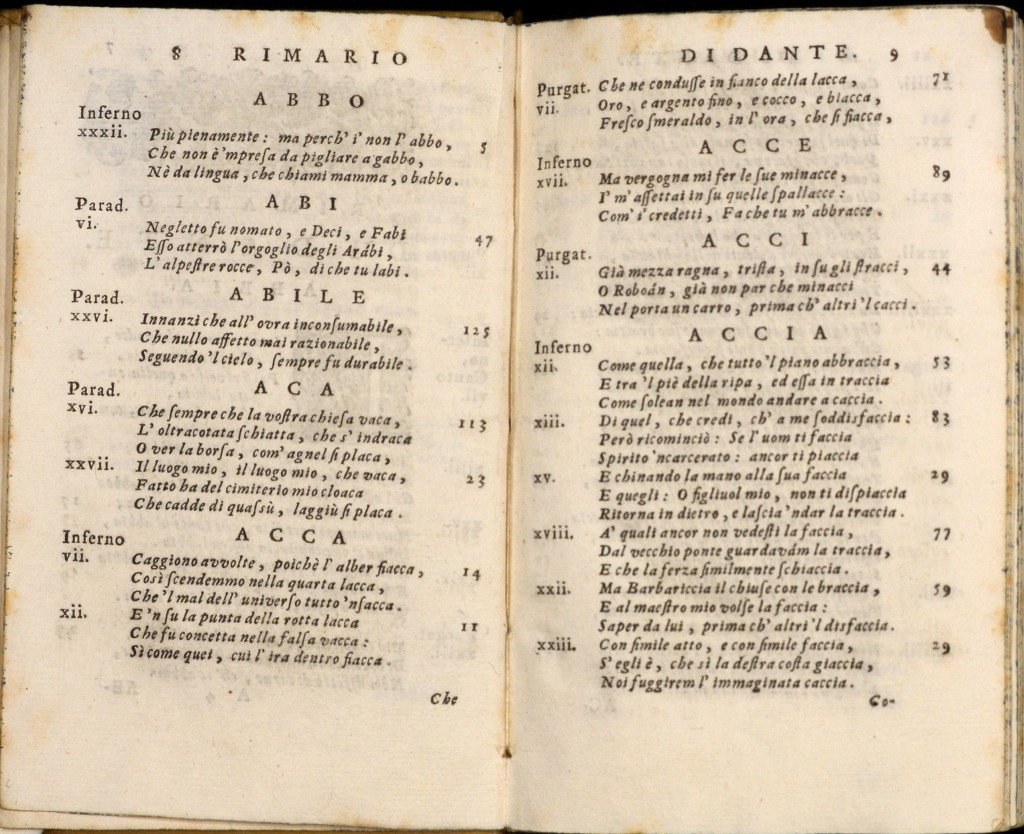 8 RIMARIO
ABBO
Inferno
xxxii. Più pienamente: ma perch' i' non l' abbo, 5
Che non è 'mpreſa da pigliare a gabbo,
Nè da lingua, che chiami mamma, o babbo.
ABI
Parad.
vi. Negletto fu nomato, e Deci, e Fabi 47
Eſſo atterrò l'orgoglio degli Arábi,
L'alpeſtre rocce, Pò, di che tu labi.
ABILE
Parad.
xxvi. Innanzi che all' ovra inconſumabile, 125
Che nullo affetto mai razionabile,
Seguendo 'l cielo, ſempre fu durabile.
ACA
Parad.
xvi. Che ſempre che la voſtra chieſa vaca, 113
L' oltracotata ſchiatta, che s' indraca
O ver la borſa, com' agnel ſi placa,
xxvii. Il luogo mio, il luogo mio, che vaca, 23
Fatto ha del cimiterio mio cloaca
Che cadde di quaſsù, laggiù ſi placa.
ACCA
Inferno
vii. Caggiono avvolte, poichè l' alber fiacca, 14
Così ſcendemmo nella quarta lacca,
Che 'l mal dell' univerſo tutto 'nſacca.
xii. E 'n ſu la punta della rotta lacca 11
Che fu concetta nella falſa vacca:
Sì come quei, cui l' ira dentro fiacca.
Che
DI DANTE. 9
Purgat. Che ne conduſſe in fianco della lacca, 71
vii. Oro, e argento fino, e cocco, e biacca,
Freſco ſmeraldo, in l' ora, che ſi fiacca,
ACCE
Inferno
xvii. Ma vergogna mi fer le ſue minacce, 89
I' m' aſſettai in ſu quelle ſpallacce:
Com' i' credetti, Fa che tu m' abbracce.
ACCI
Purgat.
xii. Già mezza ragna, triſta, in ſu gli ſtracci, 44
O Roboán, già non par che minacci
Nel porta un carro, prima ch' altri 'l cacci.
ACCIA
Inferno
xii. Come quella, che tutto 'l piano abbraccia, 53
E tra 'l piè della ripa, ed eſſa in traccia
Come ſolean nel mondo andare a caccia.
xiii. Di quel, che credi, ch' a me ſoddisfaccia: 83
Però ricominciò: Se l' uom ti faccia
Spirito 'ncarcerato: ancor ti piaccia
xv. E chinando la mano alla ſua faccia 29
E quegli: O figliuol mio, non ti diſpiaccia
Ritorna in dietro, e laſcia 'ndar la traccia.
xviii. A' quali ancor non vedeſti la faccia, 77
Dal vecchio ponte guardavám la traccia,
E che la ferza ſimilmente ſchiaccia.
xxii. Ma Barbariccia il chiuſe con le braccia, 59
E al maeſtro mio volſe la faccia:
Saper da lui, prima ch' altri 'l disfaccia.
xxiii. Con ſimile atto, e con ſimile faccia, 29
S' egli è, che sì la deſtra coſta giaccia,
Noi fuggirem l' immaginata caccia.
Co-